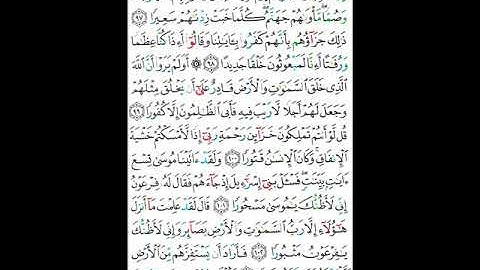 وَصُمًّا مَّأْوَىٰهُمْ جَهَنَّمُ كُلَّمَا خَبَتْ زِدْنَٰهُمْ سَعِيرًا ٩٧
ذَٰلِكَ جَزَآؤُهُم بِأَنَّهُمْ كَفَرُوا۟ بِـَٔايَٰتِنَا وَقَالُوٓا۟ أَءِذَا كُنَّا عِظَٰمًا
وَرُفَٰتًا أَءِنَّا لَمَبْعُوثُونَ خَلْقًا جَدِيدًا ٩٨ ۞ أَوَلَمْ يَرَوْا۟ أَنَّ ٱللَّهَ
ٱلَّذِى خَلَقَ ٱلسَّمَٰوَٰتِ وَٱلْأَرْضَ قَادِرٌ عَلَىٰٓ أَن يَخْلُقَ مِثْلَهُمْ
وَجَعَلَ لَهُمْ أَجَلًا لَّا رَيْبَ فِيهِ فَأَبَى ٱلظَّٰلِمُونَ إِلَّا كُفُورًا ٩٩
قُل لَّوْ أَنتُمْ تَمْلِكُونَ خَزَآئِنَ رَحْمَةِ رَبِّىٓ إِذًا لَّأَمْسَكْتُمْ خَشْيَةَ
ٱلْإِنفَاقِ وَكَانَ ٱلْإِنسَٰنُ قَتُورًا ١٠٠ وَلَقَدْ ءَاتَيْنَا مُوسَىٰ تِسْعَ
ءَايَٰتٍۭ بَيِّنَٰتٍ فَسْـَٔلْ بَنِىٓ إِسْرَٰٓءِيلَ إِذْ جَآءَهُمْ فَقَالَ لَهُۥ فِرْعَوْنُ
إِنِّى لَأَظُنُّكَ يَٰمُوسَىٰ مَسْحُورًا ١٠١ قَالَ لَقَدْ عَلِمْتَ مَآ أَنزَلَ
هَٰٓؤُلَآءِ إِلَّا رَبُّ ٱلسَّمَٰوَٰتِ وَٱلْأَرْضِ بَصَآئِرَ وَإِنِّى لَأَظُنُّكَ
يَٰفِرْعَوْنُ مَثْبُورًا ١٠٢ فَأَرَادَ أَن يَسْتَفِزَّهُم مِّنَ ٱلْأَرْضِ